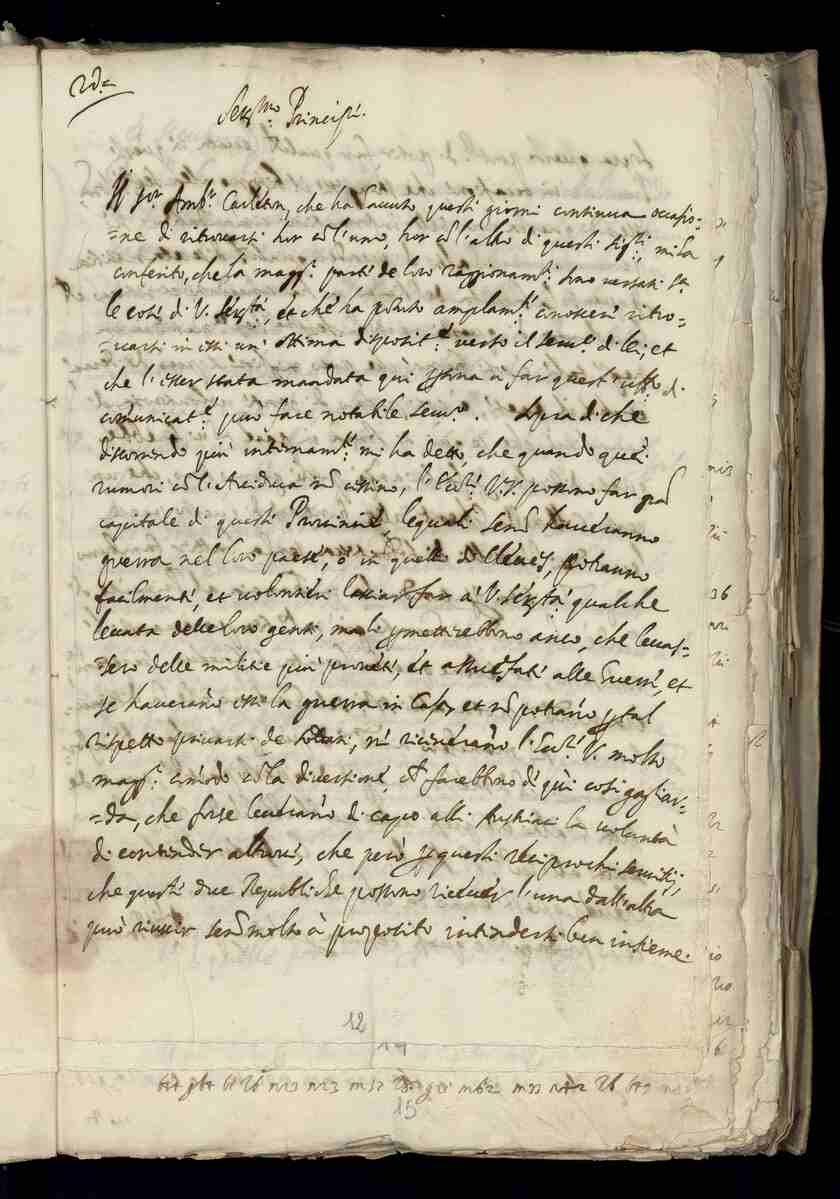 2da
Sermo Principe.
Il sor Ambr Carleton, che ha havuto questi giorni continua occasio=
=ne di ritrovarsi hor co l'uno, hor co l'altro di questi sigri, mi ha
conferito, che la maggr parte de loro raggionamti sono versati sa
le cose di V. Sertà, et che ha potuto amplamte conoscere ritro=
=varsi in essi un' ottima disposite verso il servo di lei; et
che l'esser stata mandata quì persona à far quest' uffo di
comunicate può fare notabile servo. Sopra di che
discorrendo più internamte mi ha detto, che quando que
rumori co l'Arciduca no cessino, l'Ecce VV. possono far gra
capitale di queste Provincie, lequali se no haveranno
guerra nel loro paese, ò in quello di Cleves, potranno
facilmente, et volontieri lasciar far à V. Sertà qualche
levata delle loro genti, ma le permetterebbono anco, che levas=
=sero delle militie più provete, et assuefate alle Guerre, et
se haverano essi la guerra in Casa, et no potrano per tal
rispetto privarsi de soldati, ne riceverano l'Ecce V. molto
maggr comodo co la diversione, che farebbono di quì così gagliar=
=da, che forse leverano di capo alli Austriaci la volontà
di contender altrove, che però per questi reciprochi servitii,
che queste due Republiche possono ricever l'una dall'altra
può riuscir se no molto à proposito intendersi ben insieme.
12
15